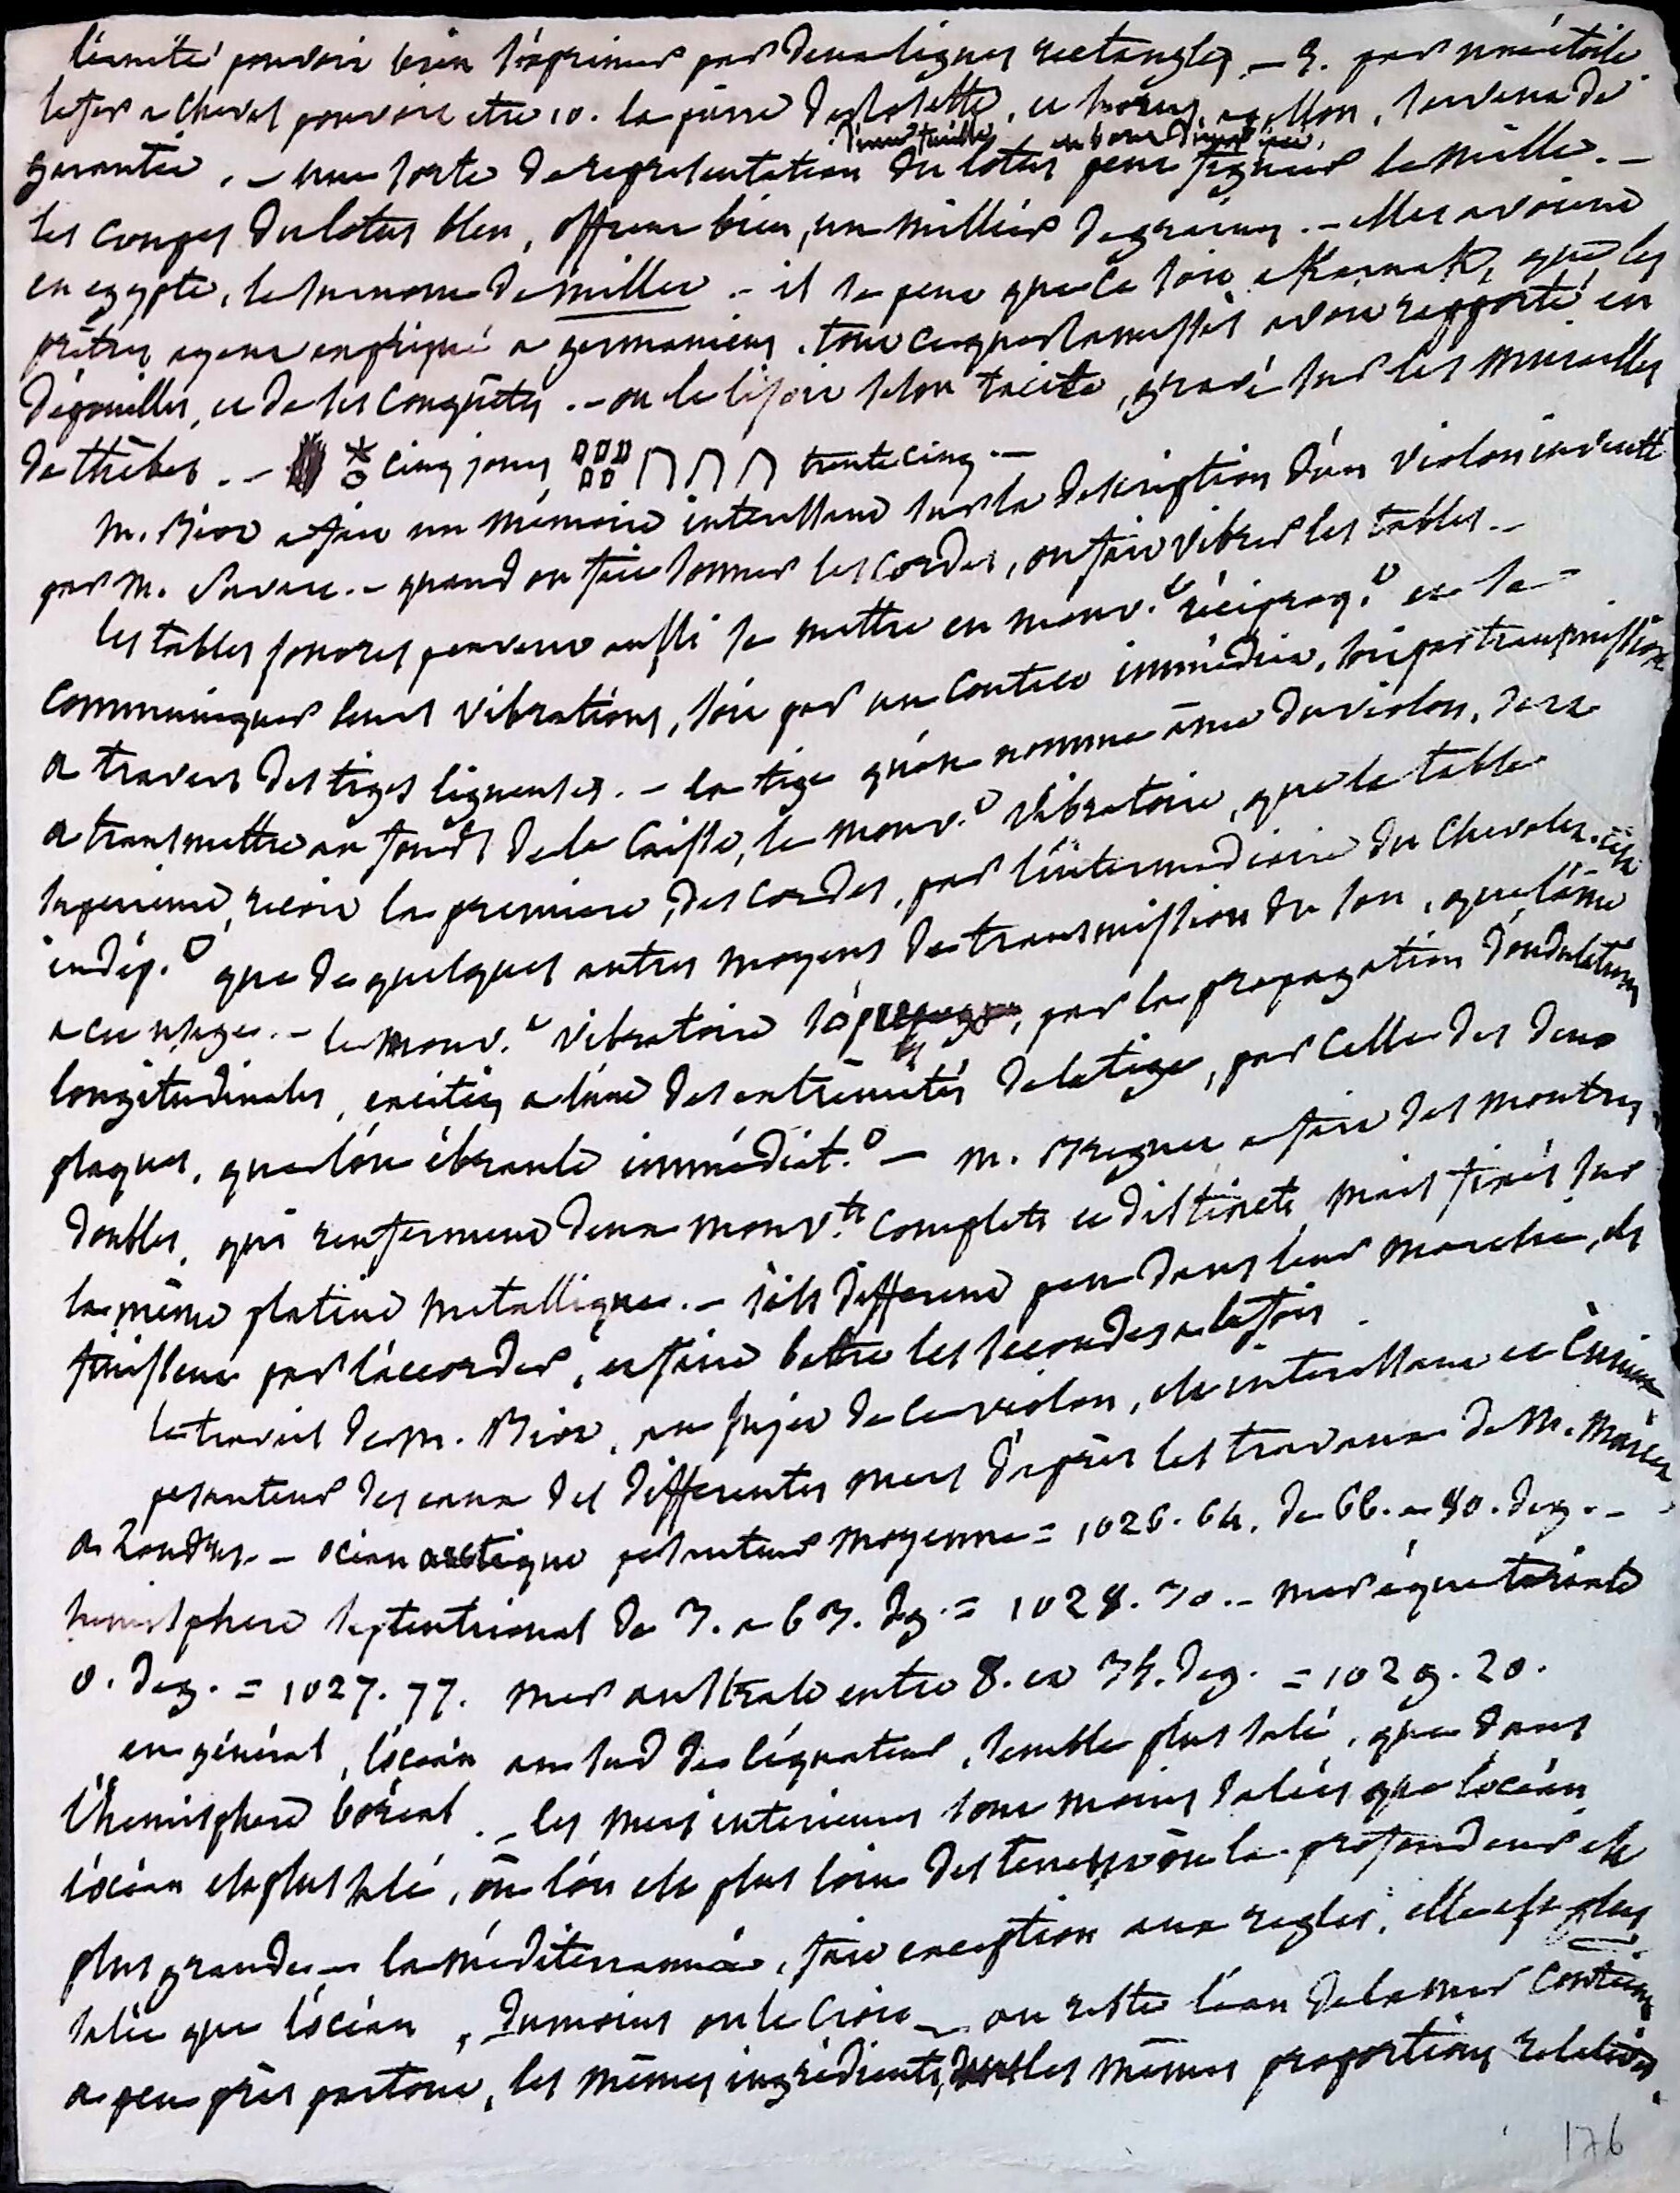 l'unité pouvoit bien s'exprimer par deux lignes rectangles, — 5. par une étoile
le fer a cheval pouvoit etre 10. la pierre de rosette, et horus apollon, servent de
garantie. — une sorte de representation du lotus peut figurer le mille. —
d'une feuille, au bout d'une tige,
les coupes du lotus bleu, offrent bien, un millier de graines. — elles avoient
en egypte, le surnom de mille. — il se peut que ce soit a Karnak, que les
prêtres ayent expliqué a germanicus, tout ce que rhamsès avoit rapporté en
dépouilles, et de ses conquêtes. — on le lisoit selon tacite, gravé sur les murailles
de thèbes. — * cinq jours, ∩∩∩ trente cinq. —
M. Biot a fait un mémoire interessant sur la description d'un violon inventé
par M. Savart. — quand on fait sonner les cordes, on fait vibrer les tables. —
les tables sonores peuvent aussi se mettre en mouv.t réciproq.t et se
communiquer leurs vibrations, soit par un contact immédiat, soit par transmission
a travers des tiges ligneuses. — la tige qu'on nomme ame du violon, sert
a transmettre au fonds de la caisse, le mouv.t vibratoire, que la table
superieure, reçoit la premiere, des cordes, par l'intermediaire du chevalet. c'est
indép.t que de quelques autres moyens de transmission du son, que l'âme
a cet usage. — le mouv.t vibratoire s'opere, par la propagation d'ondulations
longitudinales, excitées a l'une des extrêmités de la tige, par celle des deux
plaques, que l'on ébranle immédiat.t — M. Breguet a fait des montres
doubles, qui renferment deux mouv.ts complets et distincts, mais fixés sur
la même platine metallique. — s'ils different peu dans leur marche, ils
finissent par s'accorder, et faire battre les secondes a la fois.
le travail de M. Biot, au sujet de ce violon, est interessant et curieux
pesanteur des eaux des differentes mers d'après les travaux de M. Marcet
a Londres. — océan arctique pesanteur moyenne = 1026. 64. de 66. a 80. deg. —
hemisphere septentrional de 3. a 63. deg. = 1028. 30. — mer équatoriale
0. deg. = 1027. 77. mer australe entre 8. et 34. deg. = 1029. 20.
en général, l'océan au sud de l'équateur, semble plus salé, que dans
l'hemisphere boréal. — les mers interieures sont moins salées que l'océan
l'océan est plus salé, où l'on est plus loin des terres, où la profondeur est
plus grande — la méditerrannée, fait exception aux regles, elle est plus
salée que l'océan, du moins on le croit — au reste l'eau de la mer contient
a peu près partout, les mêmes ingrédients, dans les mêmes proportions relatives.
176